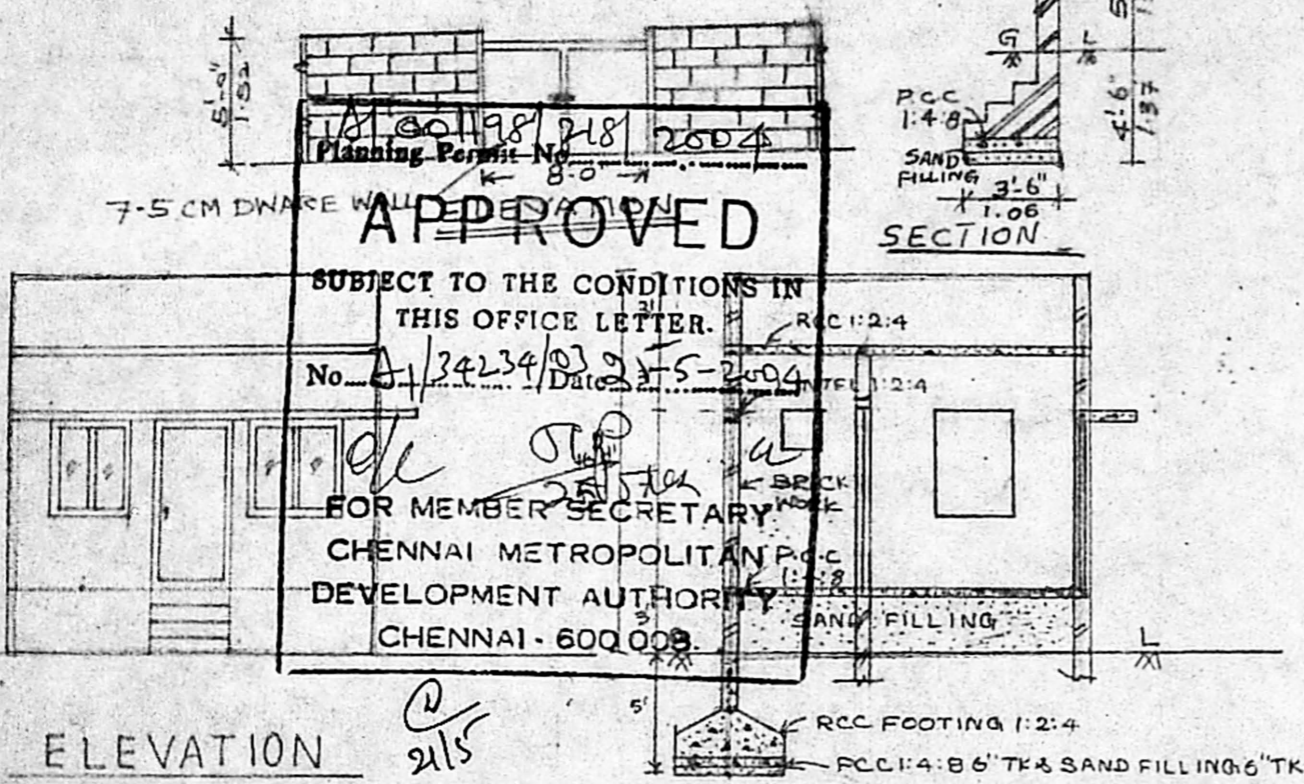 5'-0"
1.52
G L
P.C.C
1:4:8
SAND
FILLING
3'-6"
1.06
4'-6"
1.37
SECTION
2004
Planning Permit No
8-0"
7-5 CM DWARF WALL ELEVATION
APPROVED
SUBJECT TO THE CONDITIONS IN
THIS OFFICE LETTER.
No. A1/34234/03 Date -5-2004
FOR MEMBER SECRETARY
CHENNAI METROPOLITAN
DEVELOPMENT AUTHORITY
CHENNAI - 600 008.
3'
RCC 1:2:4
LINTEL 1:2:4
BRICK
WORK
P.C.C
1:4:8
SAND FILLING
L
5'
RCC FOOTING 1:2:4
PCC 1:4:8 6" TK & SAND FILLING 6" TK
21/5
ELEVATION